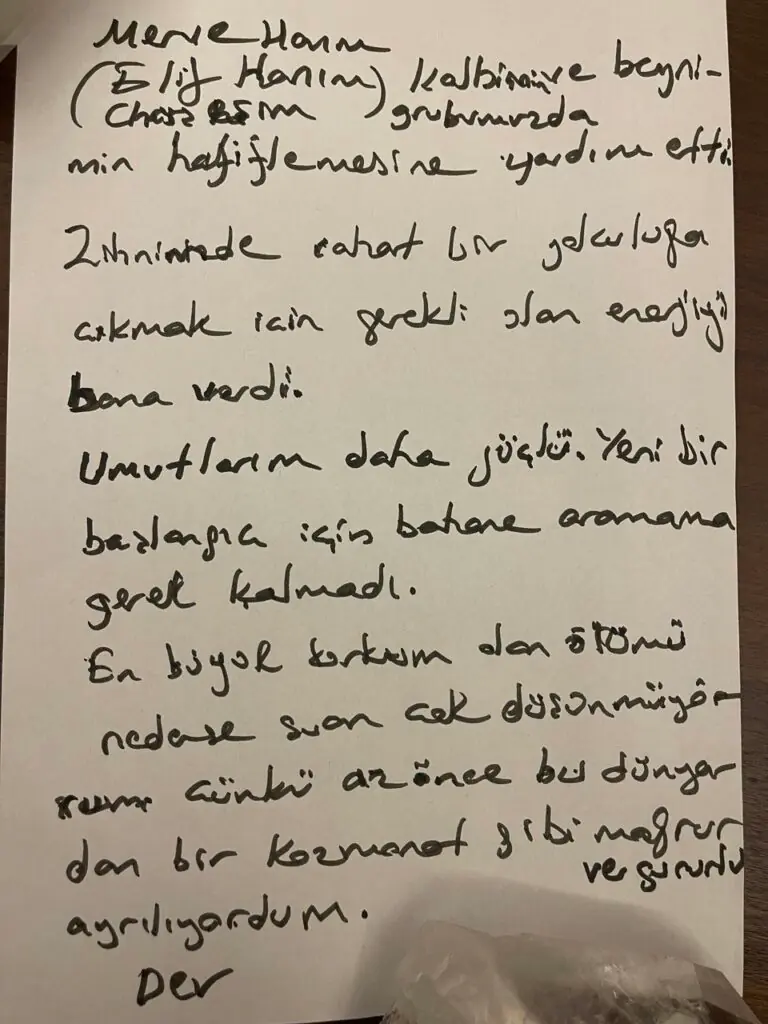 Merve Hanım
(Elif Hanım) kalbimi ve beyni-
grubumuzda
min hafiflemesine yardım etti.
Zihnimde rahat bir yolculuğa
çıkmak için gerekli olan enerjiyi
bana verdi.
Umutlarım daha güçlü. Yeni bir
başlangıca için bahane aramama
gerek kalmadı.
En büyük korkum olan ölümü
nedense şuan çok düşünmüyo-
rum çünkü az önce bu dünya-
dan bir kozmonot gibi mağrur
ve gururlu
ayrılıyordum.
Der